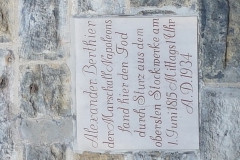 Alexander Berthier
der Marschall Napoleons
fand hier den Tod
durch Sturz aus dem
obersten Stockwerke am
1. Juni 1815 Mittags 1 Uhr
A.D. 1934